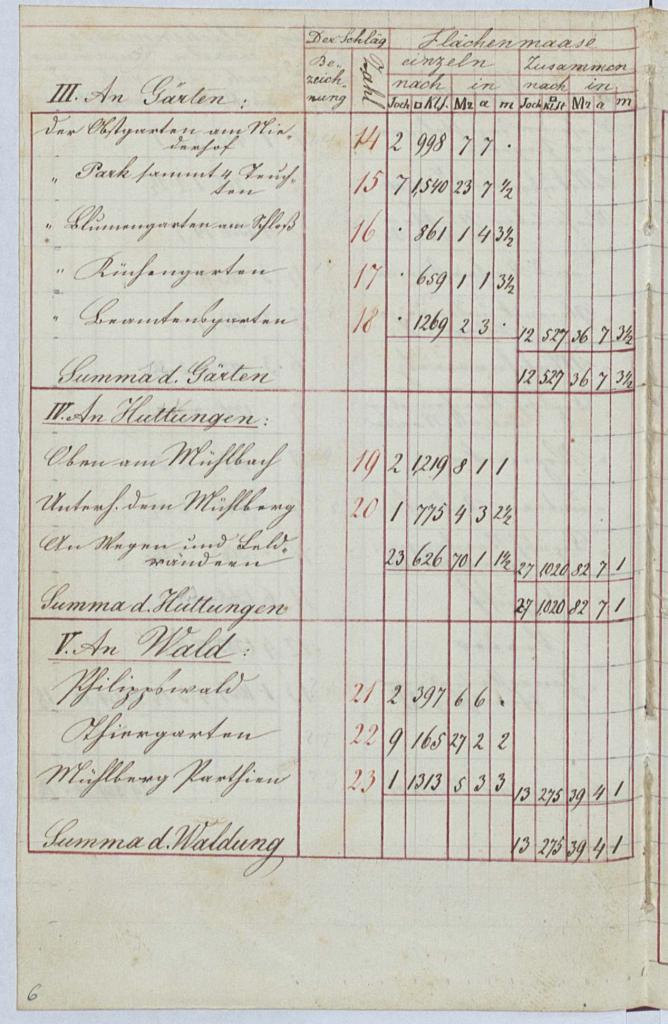 Der Schläg Flächenmaase
Be- Zahl einzeln Zusammen
zeich- nach in nach in
III. An Gärten: nung Joch □Klf. Mz a m Joch □Klft Mz a m
Der Obstgarten am Nie- 14 2 998 7 7 ·
derhof
" Park sammt 4 Teuch- 15 7 1,540 23 7 ½
ten
" Blumengarten am Schloß 16 · 861 1 4 3½
" Küchengarten 17 · 659 1 1 3½
" Beamtensgarten 18 · 1269 2 3 · 12 527 36 7 3½
Summa d. Gärten 12 527 36 7 3½
IV. An Huttungen:
Oben am Mühlbach 19 2 1,219 8 1 1
Unterh. dem Mühlberg 20 1 775 4 3 2½
An Wegen und Feld-
rändern 23 626 70 1 1½ 27 1,020 82 7 1
Summa d. Huttungen 27 1,020 82 7 1
V. An Wald:
Philippswald 21 2 397 6 6 .
Thiergarten 22 9 165 27 2 2
Mühlberg Parthien 23 1 1313 5 3 3 13 275 39 4 1
Summa d. Waldung 13 275 39 4 1
6